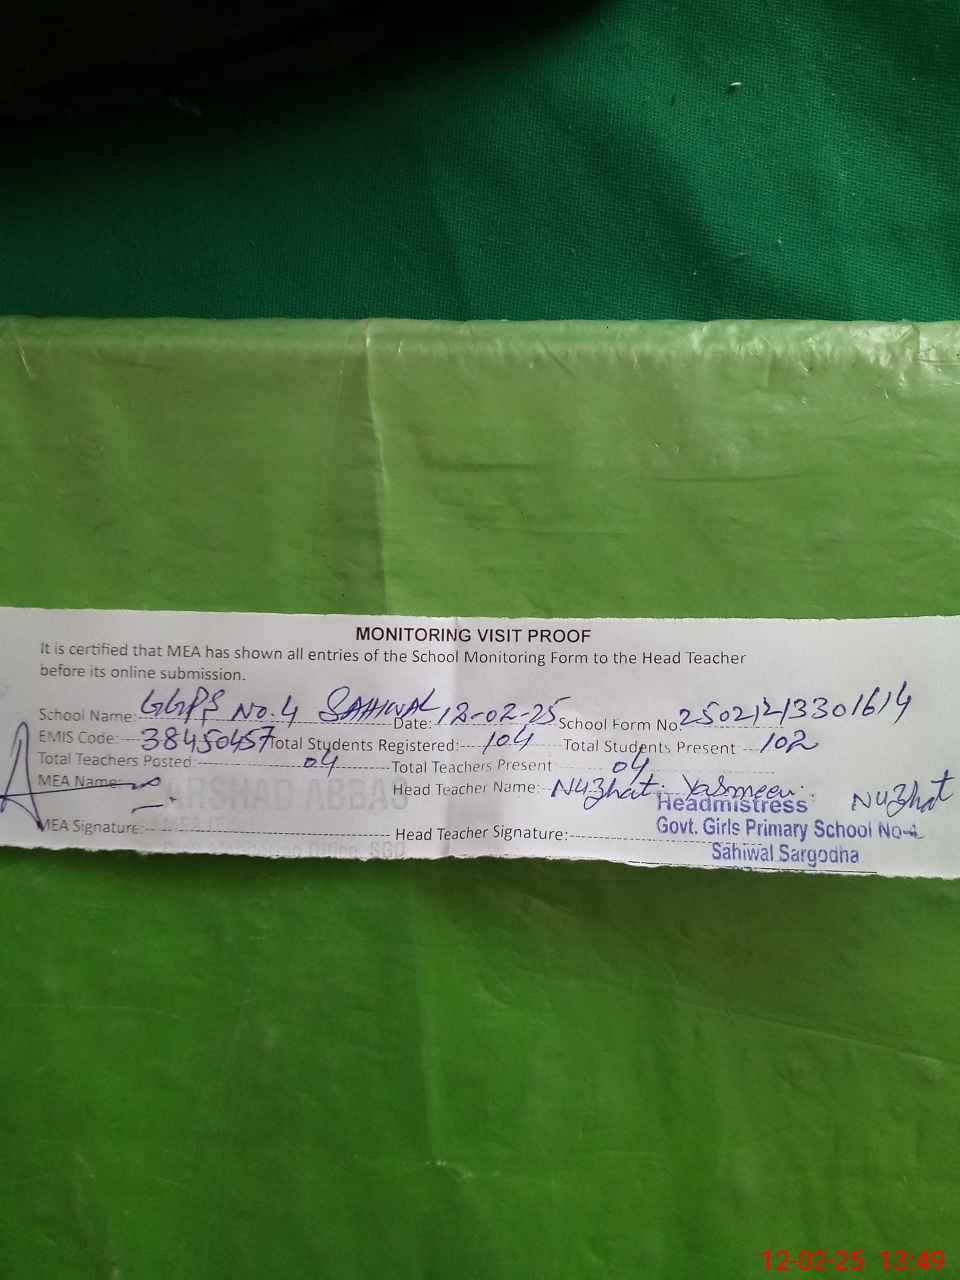 MONITORING VISIT PROOF
It is certified that MEA has shown all entries of the School Monitoring Form to the Head Teacher
before its online submission.
School Name: GGPS No. 4 SAHIWAL Date: 12-02-25 School Form No. 25021213301614
EMIS Code: 38450457 Total Students Registered: 104 Total Students Present 102
Total Teachers Posted: 04 Total Teachers Present 04
MEA Name: ARSHAD ABBAS Head Teacher Name: Nuzhat Yasmeen. Nuzhat
Headmistress
MEA Signature: Head Teacher Signature: Govt. Girls Primary School No-4
Sahiwal Sargodha
12-02-25 13:49